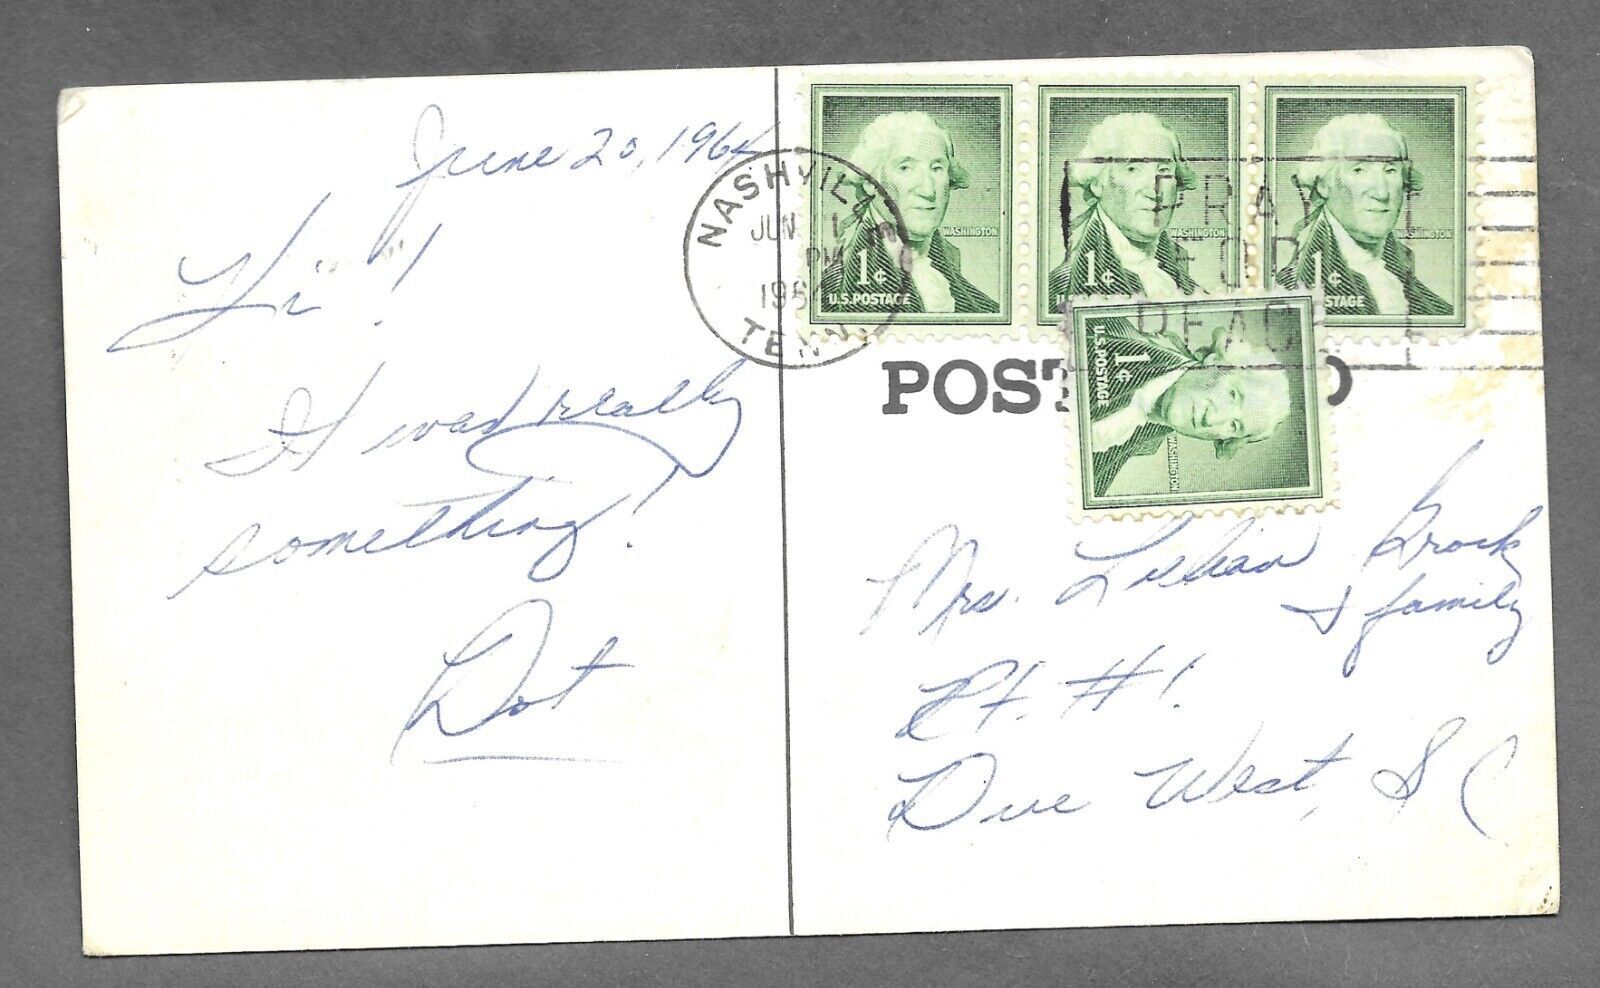 June 20, 1964
Hi!
It was really
something!
Dot
NASHVILLE
JUN 21
PM
1964
TENN.
PRAY
FOR
PEACE
WASHINGTON
1¢
U.S. POSTAGE
WASHINGTON
1¢
WASHINGTON
1¢
POSTAGE
WASHINGTON
1¢
U.S. POSTAGE
POST
Mrs. Lillian Brock
& family
Rt. #1
Due West, S C